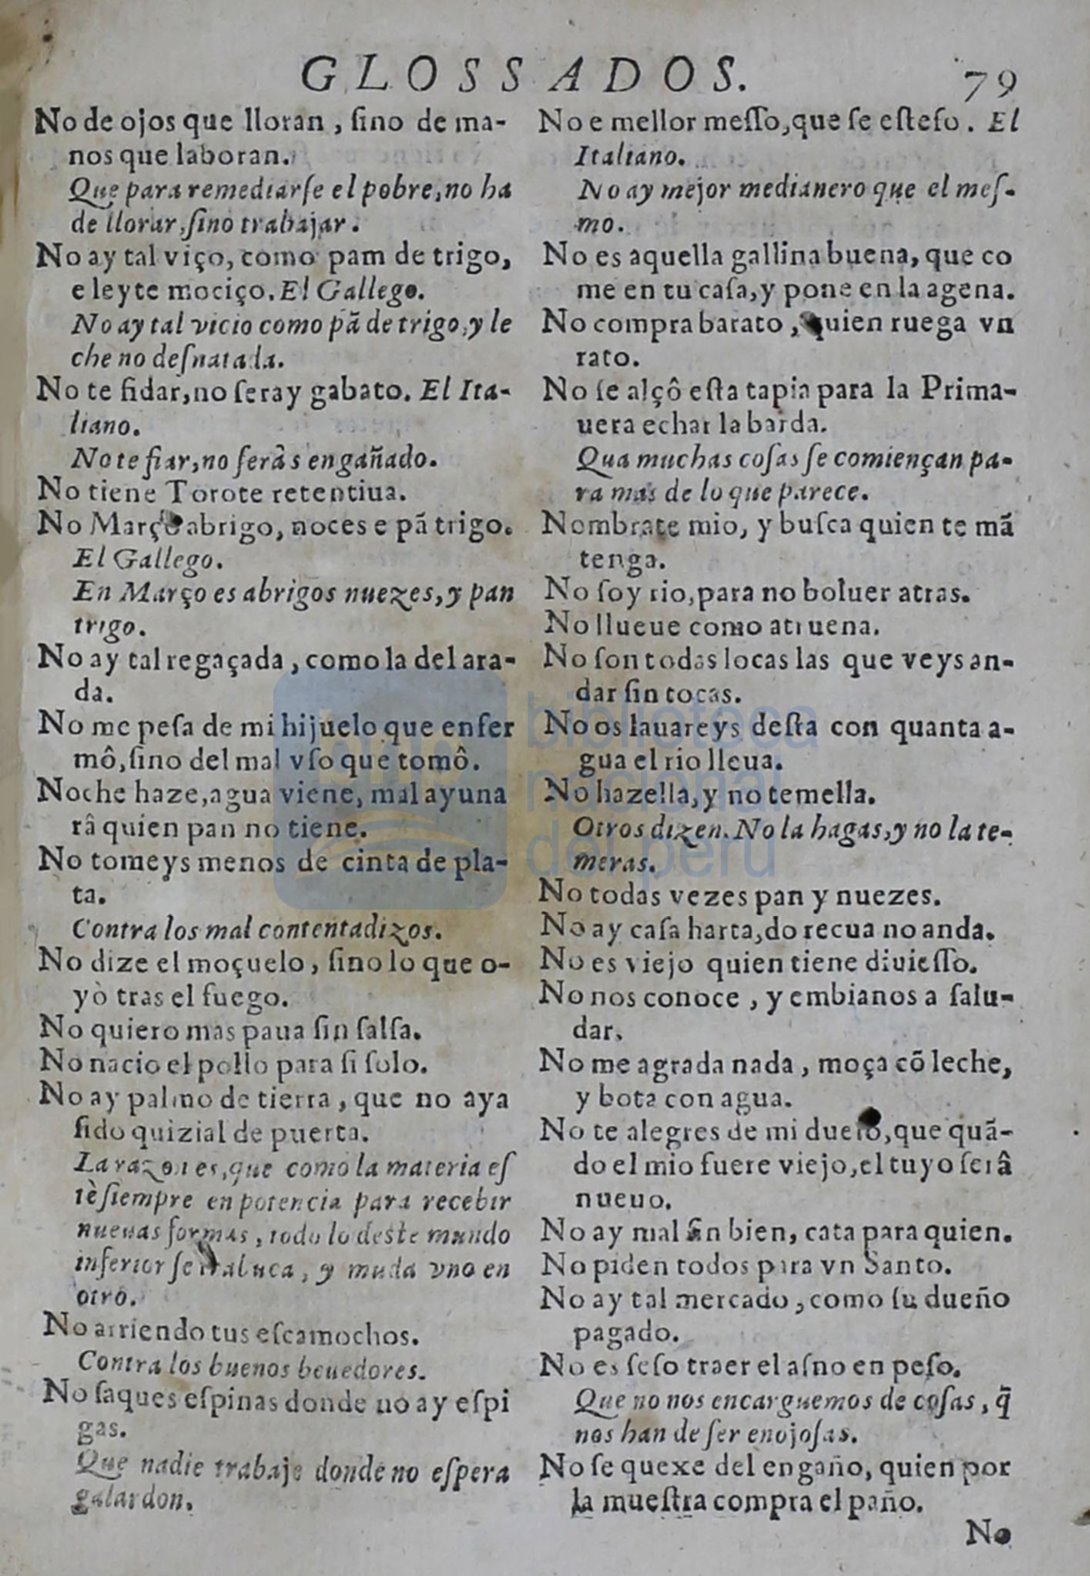 GLOSSADOS. 79
No de ojos que lloran, ſino de ma-
nos que laboran.
Que para remediarſe el pobre, no ha
de llorar, ſino trabajar.
No ay tal viço, como pam de trigo,
e leyte mociço. El Gallego.
No ay tal vicio como pã de trigo, y le
che no deſnatada.
No te fidar, no ſeray gabato. El Ita-
liano.
No te fiar, no ſeràs engañado.
No tiene Torote retentiua.
No Março abrigo, noces e pã trigo.
El Gallego.
En Março es abrigos nuezes, y pan
trigo.
No ay tal regaçada, como la del ara-
da.
No me peſa de mi hijuelo que enfer
mô, ſino del mal vſo que tomô.
Noche haze, agua viene, mal ayuna
râ quien pan no tiene.
No tomeys menos de cinta de pla-
ta.
Contra los mal contentadizos.
No dize el moçuelo, ſino lo que o-
yò tras el fuego.
No quiero mas paua ſin ſalſa.
No nacio el pollo para ſi ſolo.
No ay palmo de tierra, que no aya
ſido quizial de puerta.
La razon es, que como la materia eſ
tè ſiempre en potencia para recebir
nueuas formas, todo lo deste mundo
inferior ſe traſtueca, y muda vno en
otro.
No arriendo tus eſcamochos.
Contra los buenos beuedores.
No ſaques eſpinas donde no ay eſpi
gas.
Que nadie trabaje donde no eſpera
galardon.
No e mellor meſſo, que ſe eſteſo. El
Italiano.
No ay mejor medianero que el meſ-
mo.
No es aquella gallina buena, que co
me en tu caſa, y pone en la agena.
No compra barato, quien ruega vn
rato.
No ſe alçô eſta tapia para la Prima-
uera echar la barda.
Qua muchas coſas ſe comiençan pa-
ra mas de lo que parece.
Nombrate mio, y buſca quien te mã
tenga.
No ſoy rio, para no boluer atras.
No llueue como atruena.
No ſon todas locas las que veys an-
dar ſin tocas.
No os lauareys deſta con quanta a-
gua el rio lleua.
No hazella, y no temella.
Otros dizen. No la hagas, y no la te-
meras.
No todas vezes pan y nuezes.
No ay caſa harta, do recua no anda.
No es viejo quien tiene diuieſſo.
No nos conoce, y embianos a ſalu-
dar.
No me agrada nada, moça cõ leche,
y bota con agua.
No te alegres de mi duelo, que quã-
do el mio fuere viejo, el tuyo ſerâ
nueuo.
No ay mal ſin bien, cata para quien.
No piden todos para vn Santo.
No ay tal mercado, como ſu dueño
pagado.
No es ſeſo traer el aſno en peſo.
Que no nos encarguemos de coſas, q̃
nos han de ſer enojoſas.
No ſe quexe del engaño, quien por
la mueſtra compra el paño.
No
biblioteca
nacional
del perú